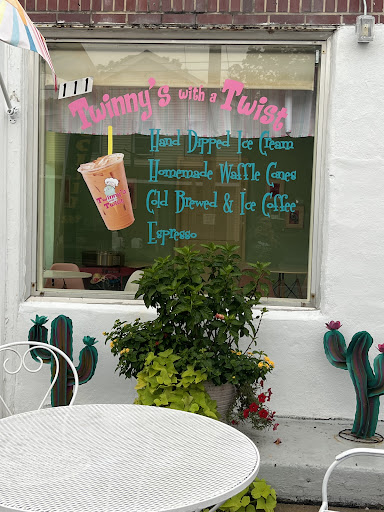 111
Twinny's with a Twist
Hand Dipped Ice Cream
Homemade Waffle Cones
Cold Brewed & Ice Coffee
Espresso
Twinny's
Twist